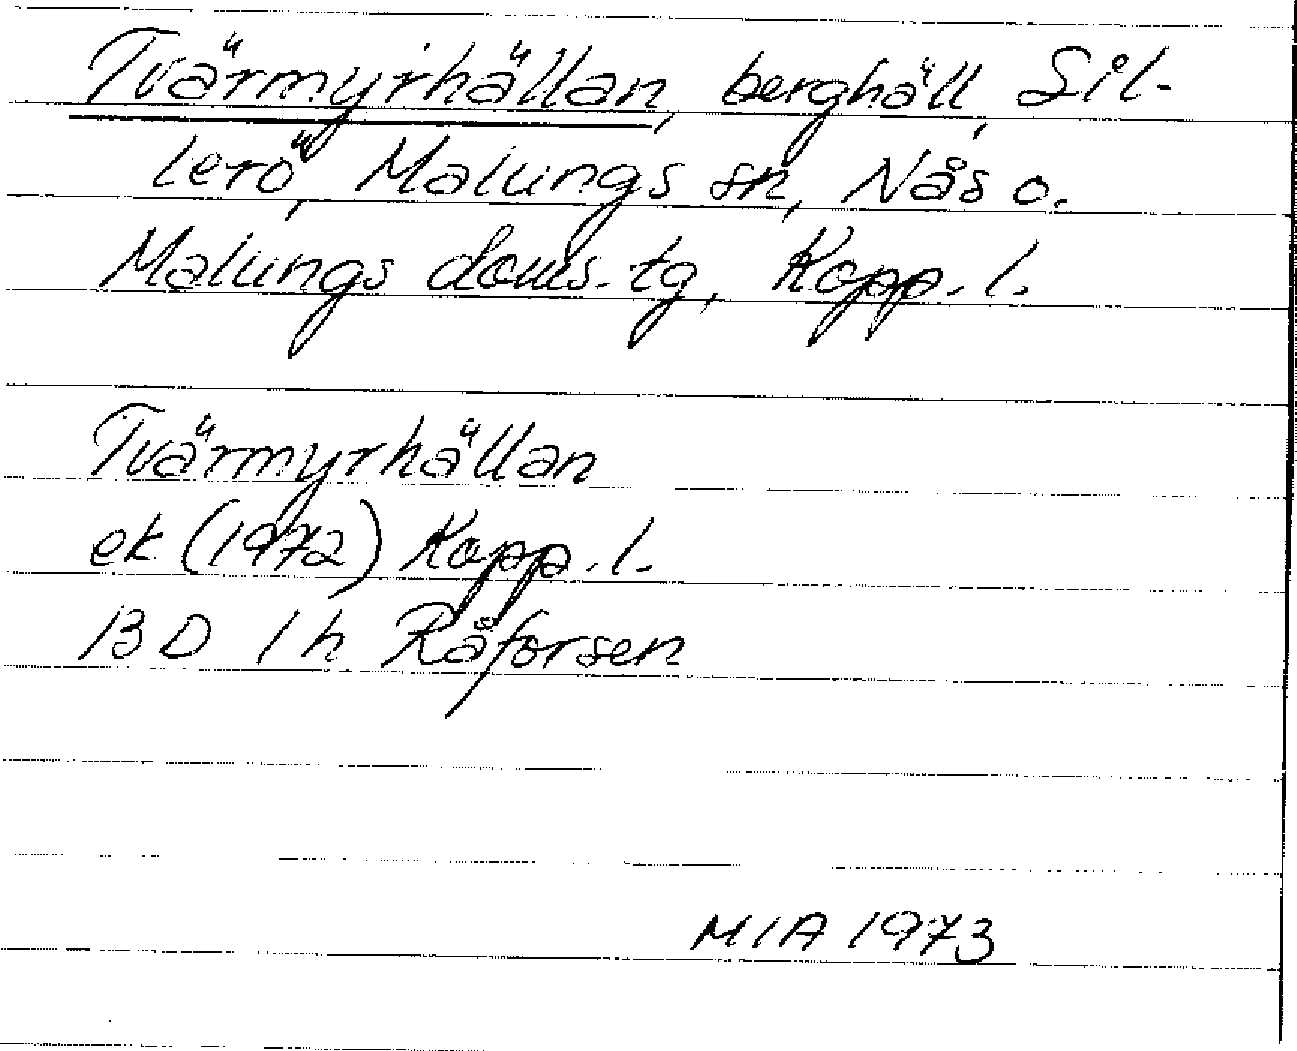 Tvärmyrhällan, berghäll, Sil-
lerö, Malungs sn, Nås o.
Malungs doms. tg, Kopp. l.
Tvärmyrhällan
ek (1972) Kopp. l.
13 D 1 h Råforsen
MIA 1973